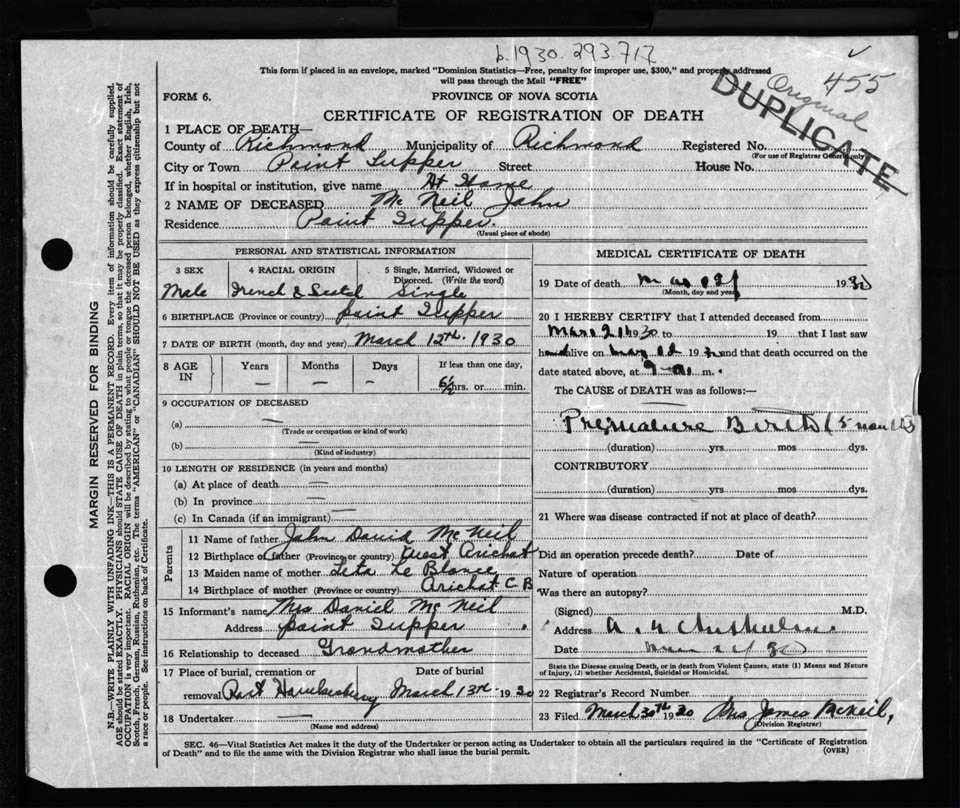 b.1930.293.717
455
Original
DUPLICATE
This form if placed in an envelope, marked "Dominion Statistics—Free, penalty for improper use, $300," and properly addressed
will pass through the Mail "FREE"
FORM 6.
PROVINCE OF NOVA SCOTIA
CERTIFICATE OF REGISTRATION OF DEATH
1 PLACE OF DEATH—
County of Richmond Municipality of Richmond Registered No.
(For use of Registrar General only)
City or Town Point Tupper Street House No.
If in hospital or institution, give name At Home
2 NAME OF DECEASED Mc Neil John
Residence Point Tupper.
(Usual place of abode)
PERSONAL AND STATISTICAL INFORMATION
3 SEX
Male
4 RACIAL ORIGIN
French & Scotch
5 Single, Married, Widowed or
Divorced. (Write the word)
Single
6 BIRTHPLACE (Province or country) Point Tupper
7 DATE OF BIRTH (month, day and year) March 12th. 1930
8 AGE IN
Years —
Months —
Days —
If less than one day,
6½ hrs. or min.
9 OCCUPATION OF DECEASED
(a) —
(Trade or occupation or kind of work)
(b) —
(Kind of industry)
10 LENGTH OF RESIDENCE (in years and months)
(a) At place of death —
(b) In province —
(c) In Canada (if an immigrant) —
Parents
11 Name of father John David McNeil
12 Birthplace of father (Province or country) West Arichat
13 Maiden name of mother Leta Le Blance
14 Birthplace of mother (Province or country) Arichat C B
15 Informant's name Mrs Daniel McNeil
Address Point Tupper
16 Relationship to deceased Grandmother
17 Place of burial, cremation or Date of burial
removal Port March 13th 1930
18 Undertaker —
(Name and address)
MEDICAL CERTIFICATE OF DEATH
19 Date of death 1930
(Month, day and year)
20 I HEREBY CERTIFY that I attended deceased from
1930 to 19 that I last saw
h alive on 19 and that death occurred on the
date stated above, at m.
The CAUSE of DEATH was as follows:—
Premature Birth (5
(duration) yrs mos dys.
CONTRIBUTORY
(duration) yrs mos dys.
21 Where was disease contracted if not at place of death?
Did an operation precede death? Date of
Nature of operation
Was there an autopsy?
(Signed) M.D.
Address
Date
State the Disease causing Death, or in death from Violent Causes, state (1) Means and Nature
of Injury, (2) whether Accidental, Suicidal or Homicidal.
22 Registrar's Record Number
23 Filed March 30th 1930 Mrs James McNeil,
(Division Registrar)
SEC. 46—Vital Statistics Act makes it the duty of the Undertaker or person acting as Undertaker to obtain all the particulars required in the "Certificate of Registration
of Death" and to file the same with the Division Registrar who shall issue the burial permit.
(OVER)
MARGIN RESERVED FOR BINDING
N.B.—WRITE PLAINLY WITH UNFADING INK—THIS IS A PERMANENT RECORD. Every item of information should be carefully supplied.
AGE should be stated EXACTLY. PHYSICIANS should STATE CAUSE OF DEATH in plain terms, so that it may be properly classified. Exact statement of
OCCUPATION is very important. RACIAL ORIGIN will be described by stating to what people or tongue the deceased person belonged, whether English, Irish,
Scotch, French, German, Russian, Ruthenian, etc. The terms "AMERICAN" or "CANADIAN" SHOULD NOT BE USED as they express citizenship but not
a race or people. See instructions on back of Certificate.